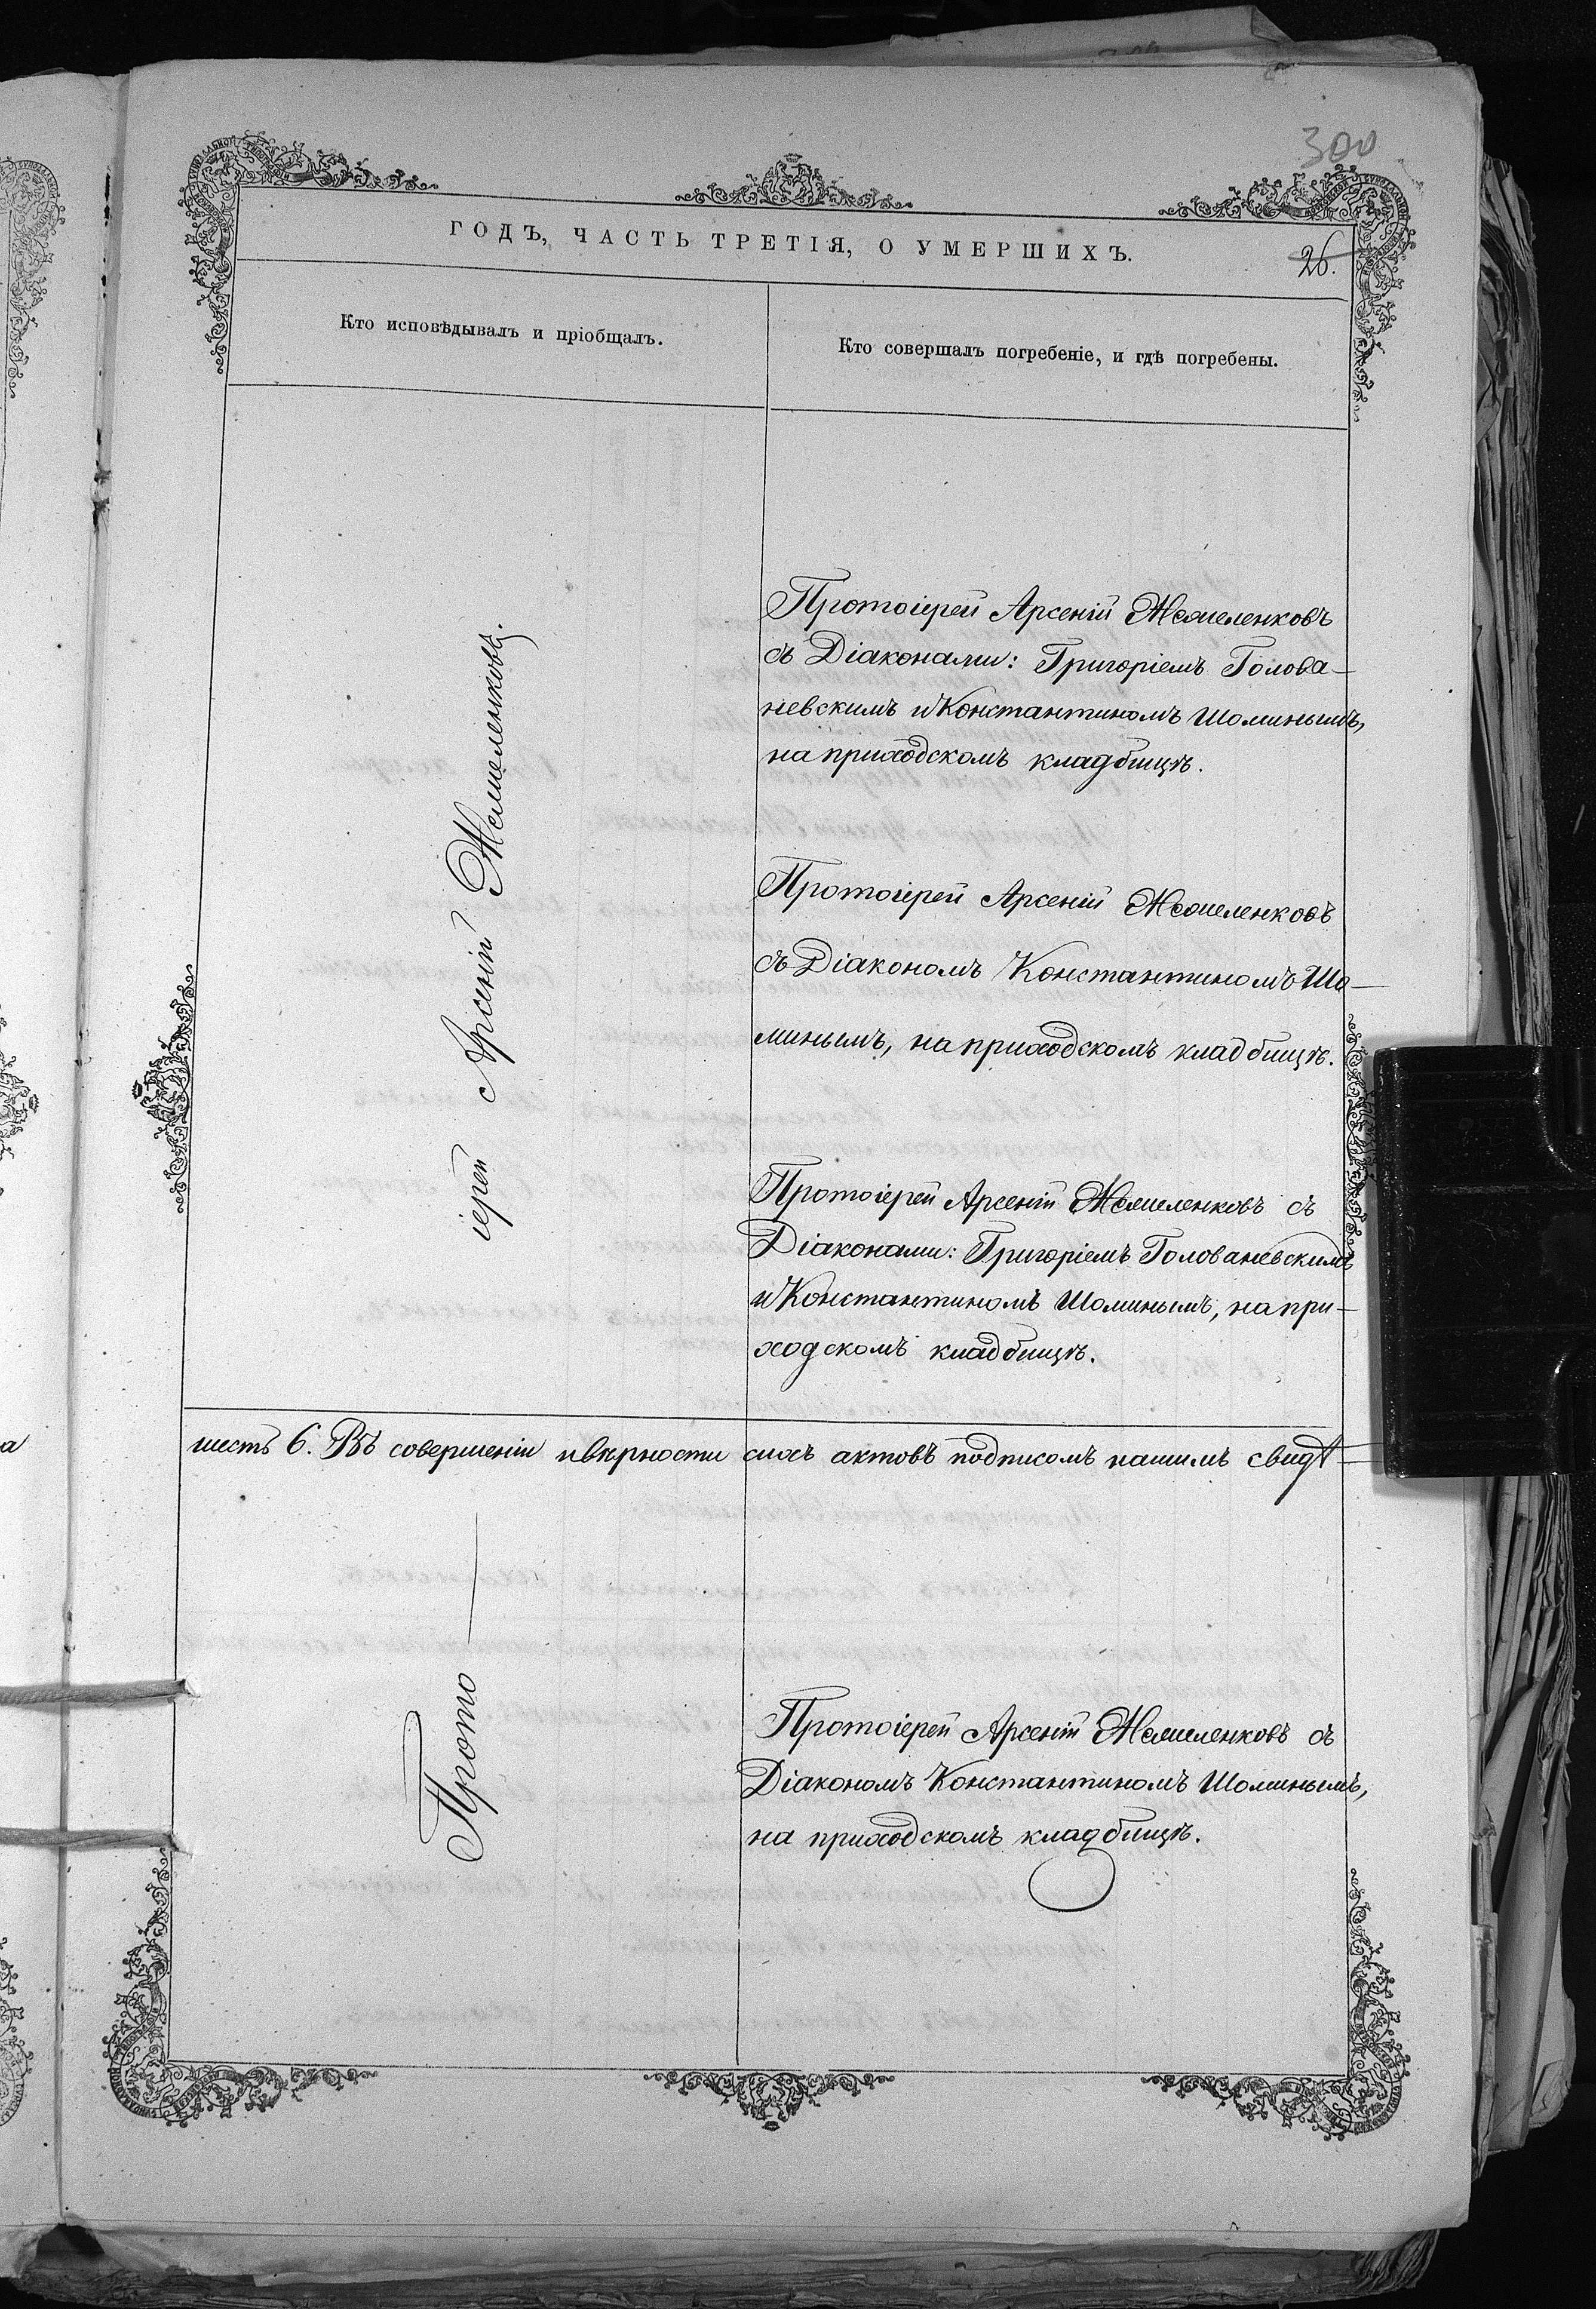 300
ГОДЪ, ЧАСТЬ ТРЕТІЯ, О УМЕРШИХЪ.
26.
Кто исповѣдывалъ и пріобщалъ.
Кто совершалъ погребеніе, и гдѣ погребены.
Протоіерей Арсеній Жемеленковъ
съ Діаконами: Григоріемъ Голова-
невскимъ и Константиномъ Шоминымъ,
на приходскомъ кладбищѣ.
Протоіерей Арсеній Жемеленковъ
съ Діакономъ Константиномъ Шо-
минымъ, на приходскомъ кладбищѣ.
Протоіерей Арсеній Жемеленковъ съ
Діаконами: Григоріемъ Голованевскимъ
и Константиномъ Шоминымъ, на при-
ходскомъ кладбищѣ.
шесть 6. Въ совершеніи и вѣрности сихъ актовъ подписомъ нашимъ свидѣ-
Протоіерей Арсеній Жемеленковъ съ
Діакономъ Константиномъ Шоминымъ,
на приходскомъ кладбищѣ.
Прото — іерей Арсеній Жемеленковъ.